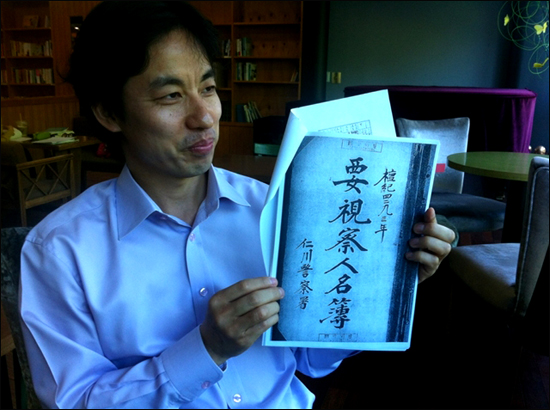 檀紀四二九三年
要視察人名簿
仁川警察署